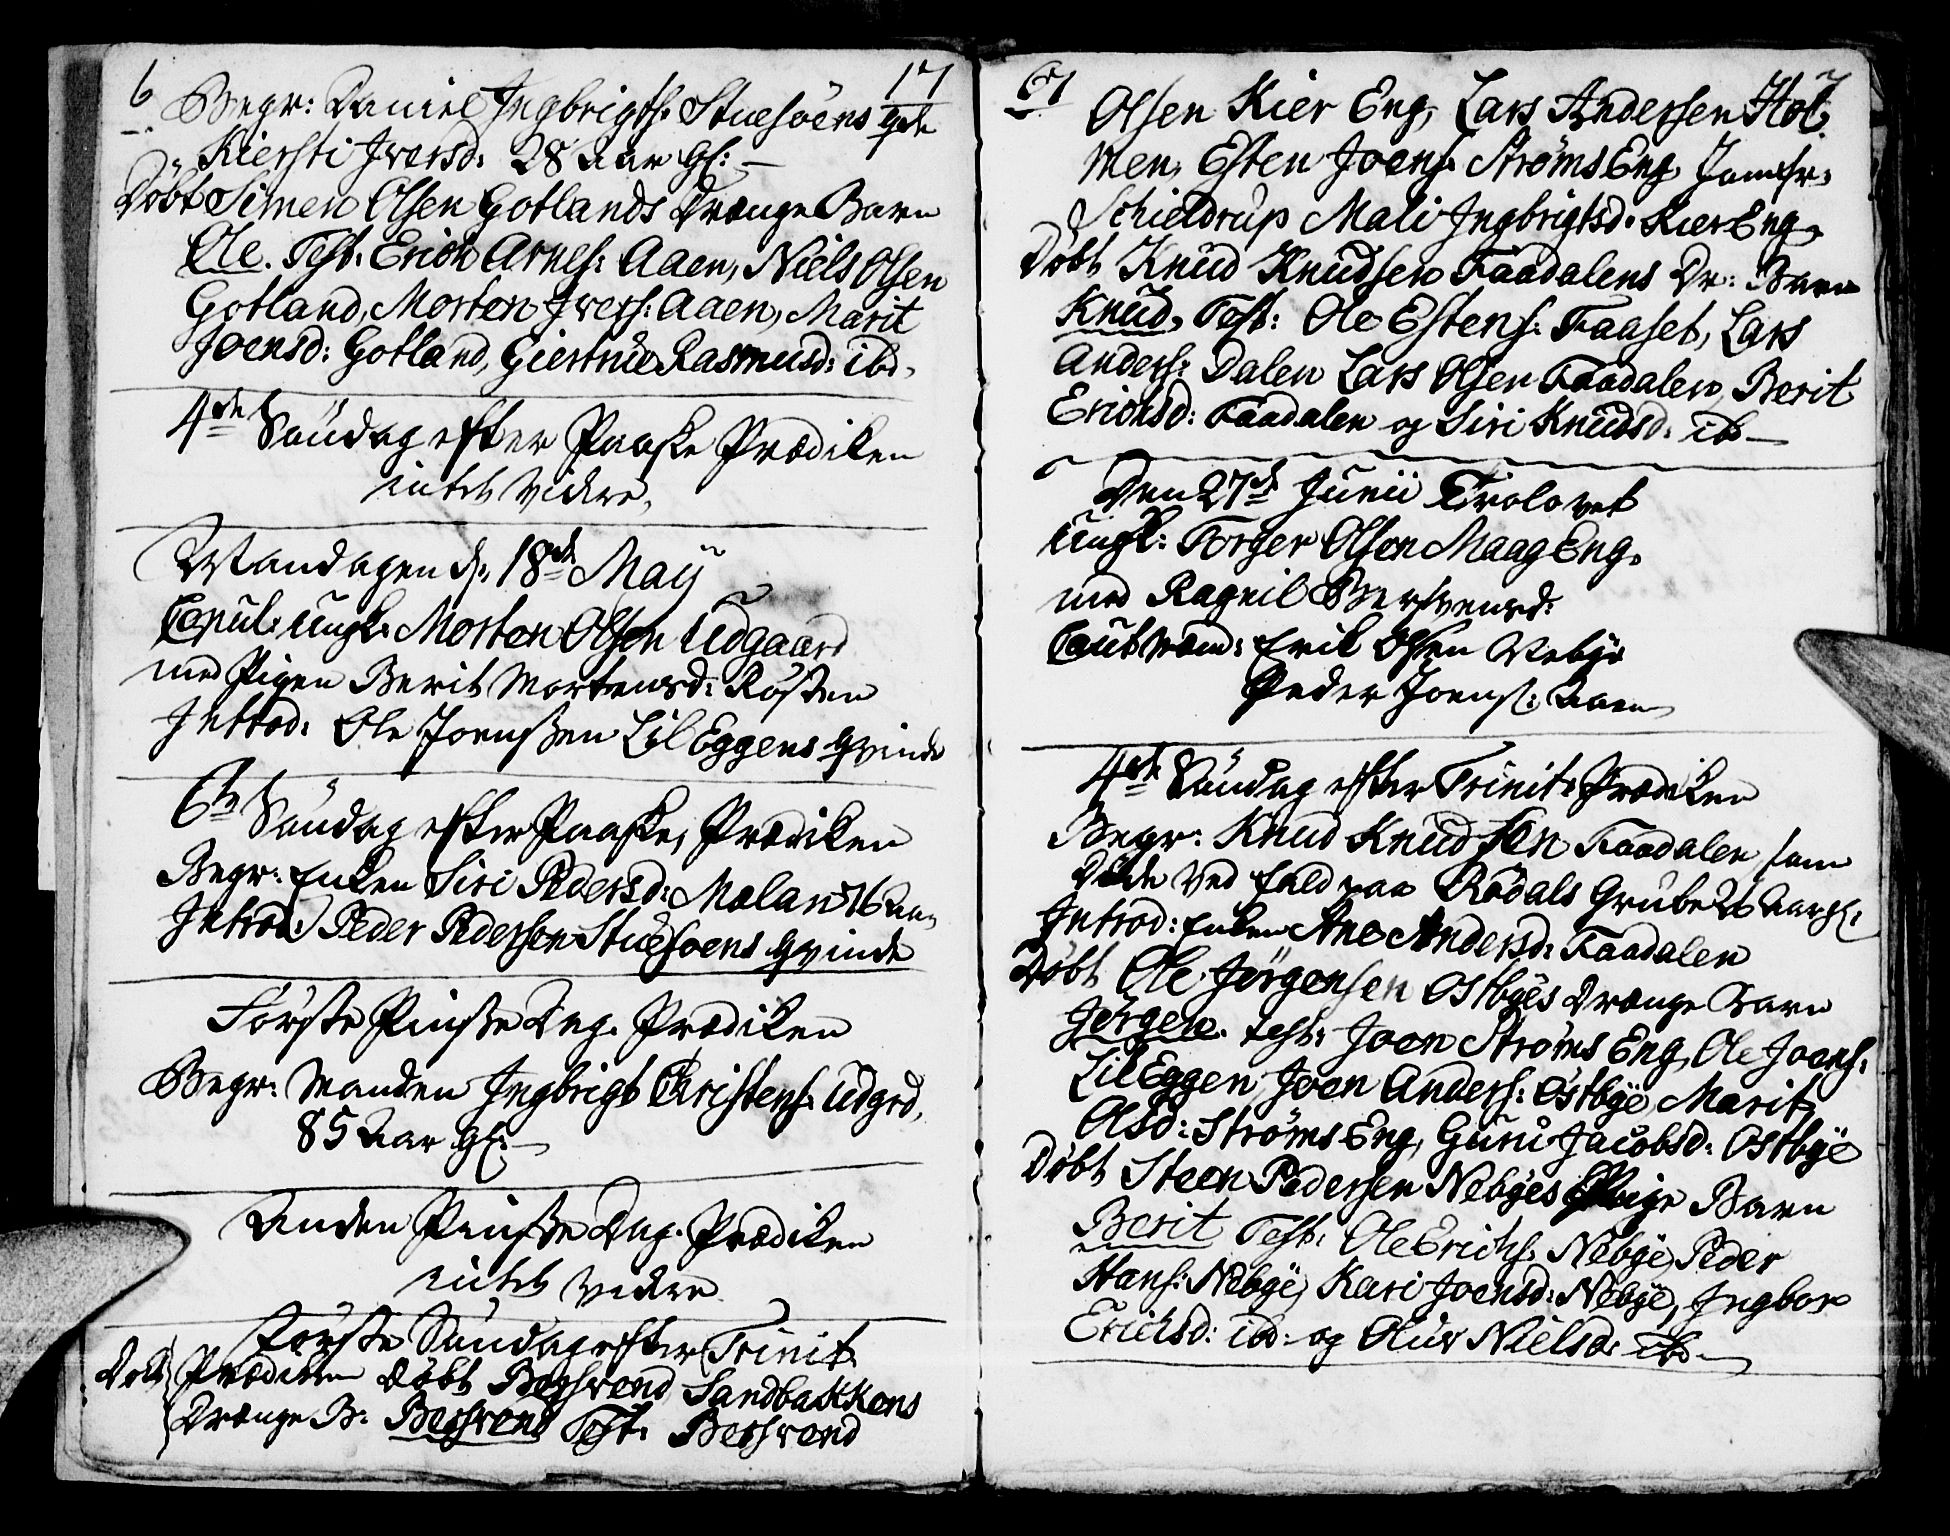 6 17
Begr: Daniel Ingbrigts: Stuesöens Qde
Kiersti Iversd: 28 Aar gl: —
Döbt Simen Olsen Gotlands Drænge Barn
Ole. Test: Erich Arnes: Aaen, Niels Olsen
Gotland, Morten Ivers: Aaen, Marit
Joensd: Gotland, Giertrue Rasmusd: ibd.
4de Söndag efter Paaske Prædiken
intet videre.
Mandagen d: 18de Maij
Copul: ungk: Morten Olsen Udgaard
med Pigen Berit Mortensd: Rösten
Introd: Ole Joenssen Lil Eggens Qvinde
6te Söndag efter Paaske, Prædiken
Begr: Enken Siri Pedersd: Molan 76 Aar
Introd: Peder Pedersen Stuesoens Qvinde
Förste Pinsse Dag. Prædiken
Begr: Manden Ingbrigt Christens: Udgrd,
85 Aar gl: —
Anden Pinsse Dag. Prædiken
intet videre
Förste Söndag efter Trinit
Döbt Prædiken Döbt Bersvend Sandbakkens
Drænge B: Bersvend Test: Bersvend
67 7
Olsen Kier Eng, Lars Andersen Hol-
men, Esten Joens: Ströms Eng, Jomfr:
Schieldrup Mali Ingbrigtsd: Kier Eng.
Döbt Knud Knudsen Faadalens Dr: Barn
Knud, Test: Ole Estens: Faaset, Lars
Anders: Dalen Lars Olsen Faadalen, Berit
Erichsd: Faadalen og Siri Knudsd: ib —
Den 27de Junii Trolovet
Ungk: Torger Olsen Maag Eng.
med Ragnil Bersvensd:
Cautionm: Erik Olsen Nebye
Peder Joens: Aaen
4de Söndag efter Trinit: Prædiken
Begr: Knud Knudsen Faadalen som
Döde ved fald paa Rödals Grube 26 Aar gl:
Introd: Enken Ane Andersd: Faadalen
Döbt Ole Jörgensen Ostbyes Drænge Barn
Jörgen. test: Joen Ströms Eng, Ole Joens:
Lil Eggen Joen Anders: Ostbye, Marit
Olsd: Ströms Eng, Guru Jacobsd: Ostbye
Döbt Steen Pedersen Nebyes Pige Barn
Berit Test: Ole Erichs: Nebye, Peder
Hans: Nebye, Kari Joensd: Nebye, Ingbor
Erichsd: ibd: og Oluv Nielsd: ibd —